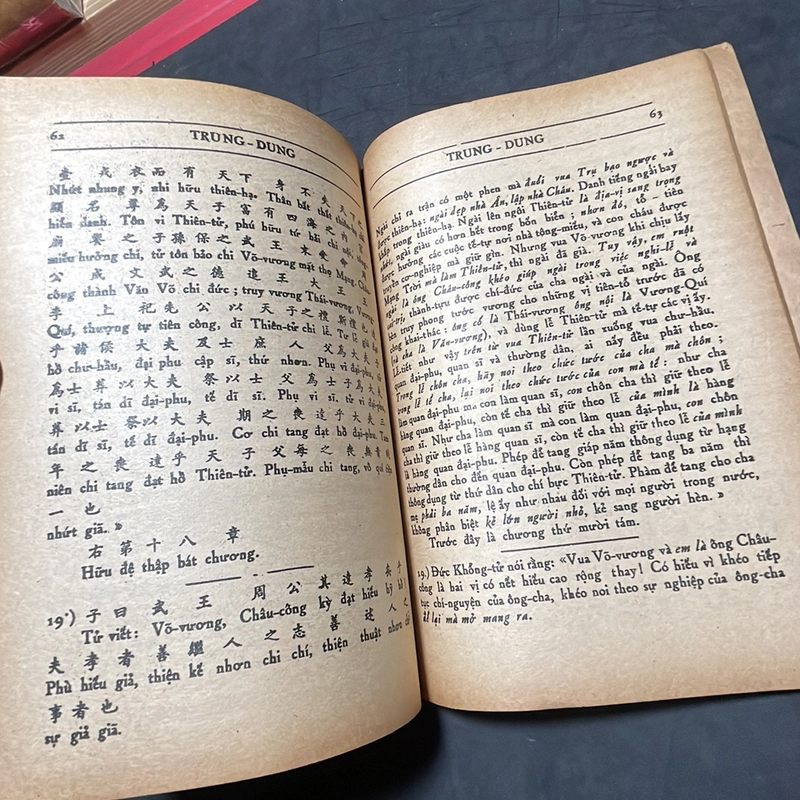 62
TRUNG - DUNG
壹 戎 衣 而 有 天 下 身 不 失 天 下
Nhứt nhung y, nhi hữu thiên-hạ. Thân bất thất thiên-hạ
顯 名 尊 爲 天 子 富 有 四 海 之 内
hiển danh. Tôn vi Thiên-tử, phú hữu tứ hải chi nội,
廟 饗 之 子 孫 保 之 武 王 末 受 命
miếu hưởng chi, tử tôn bảo chi Võ-vương mạt thọ Mạng.
公 成 文 武 之 德 追 王 大 王 王
công thành Văn Võ chi đức ; truy vương Thái-vương, Vương
季 上 祀 先 公 以 天 子 之 禮 斯 禮 也
Quí, thượng tự tiên công, dĩ Thiên-tử chi lễ. Tư lễ dã
乎 諸 侯 大 夫 及 士 庶 人 父 爲 大 夫
hồ chư-hầu, đại phu cập sĩ, thứ nhơn. Phụ vi đại-phu,
爲 士 葬 以 大 夫 祭 以 士 父 爲 士 子 爲 大
vi sĩ, tán dĩ đại-phu, tế dĩ sĩ. Phụ vi sĩ, tử vi đại
葬 以 士 祭 以 大 夫 期 之 喪 達 乎 大 夫 三
tán dĩ sĩ, tế dĩ đại-phu. Cơ chi tang đạt hồ đại-phu. Tam
年 之 喪 達 乎 天 子 父 母 之 喪 無 貴
niên chi tang đạt hồ Thiên-tử. Phụ-mẫu chi tang, vô quí
一 也
nhứt giã. »
右 第 十 八 章
Hữu đệ thập bát chương.
19°) 子 曰 武 王 周 公 其 達 孝 矣 乎
Tử viết: Võ-vương, Châu-công kỳ đạt hiếu hỹ hồ !
夫 孝 者 善 繼 人 之 志 善 述 人 之
Phù hiếu giả, thiện kế nhơn chi chí, thiện thuật nhơn chi
事 者 也
sự giả giã.
63
TRUNG - DUNG
Ngài chỉ ra trận có một phen mà đuổi vua Trụ bạo ngược và
được thiên-hạ: ngài dẹp nhà Ân, lập nhà Châu. Danh tiếng ngài bay
khắp trong thiên-hạ. Ngài lên ngôi Thiên-tử là địa-vị sang trọng
nhứt, ngài giàu có hơn hết trong bốn biển ; nhơn đó, tổ - tiên
được hưởng các cuộc tế-tự nơi nhà tông-miếu, và con cháu được
truyền cơ-nghiệp mà giữ gìn. Nhưng vua Võ-vương khi chịu lấy
Mạng Trời mà làm Thiên-tử, thì ngài đã già. Tuy vậy, em ruột
ngài là ông Châu-công khéo giúp ngài trong việc nghi-lễ và
việc thành-tựu được chí-đức của cha ngài và của ngài. Ông
truy phong tước vương cho những vị tiên-tổ trước đã có
công khai-thác : ông cố là Thái-vương ông nội là Vương-Quí
(cha là Văn-vương), và dùng lễ Thiên-tử mà tế-tự các vị ấy.
Lễ-tiết như vậy trên từ vua Thiên-tử lần xuống vua chư-hầu,
quan đại-phu, quan sĩ và thường dân, ai nấy đều phải theo.
Trong lễ chôn cha, hãy noi theo chức tước của cha mà chôn ;
trong lễ tế cha, lại noi theo chức tước của con mà tế : như cha
làm quan đại-phu mà con làm quan sĩ, con chôn cha thì giữ theo lễ
hàng quan đại-phu, còn tế cha thì giữ theo lễ của mình là hàng
quan sĩ. Như cha làm quan sĩ mà con làm quan đại-phu, con chôn
cha thì giữ theo lễ hàng quan sĩ, còn tế cha thì giữ theo lễ của mình
là hàng quan đại-phu. Phép để tang giáp năm thông dụng từ hạng
thường dân cho đến quan đại-phu. Còn phép để tang ba năm thì
thông dụng từ thứ dân cho chí bực Thiên-tử. Phàm để tang cho cha
mẹ phải ba năm, lệ ấy như nhau đối với mọi người trong nước,
không phân biệt kẻ lớn người nhỏ, kẻ sang người hèn. »
Trước đây là chương thứ mười tám.
19.) Đức Khổng-tử nói rằng: «Vua Võ-vương và em là ông Châu-
công là hai vị có nết hiếu cao rộng thay! Có hiếu vì khéo tiếp
tục chí-nguyện của ông-cha, khéo noi theo sự nghiệp của ông-cha
để lại mà mở mang ra.